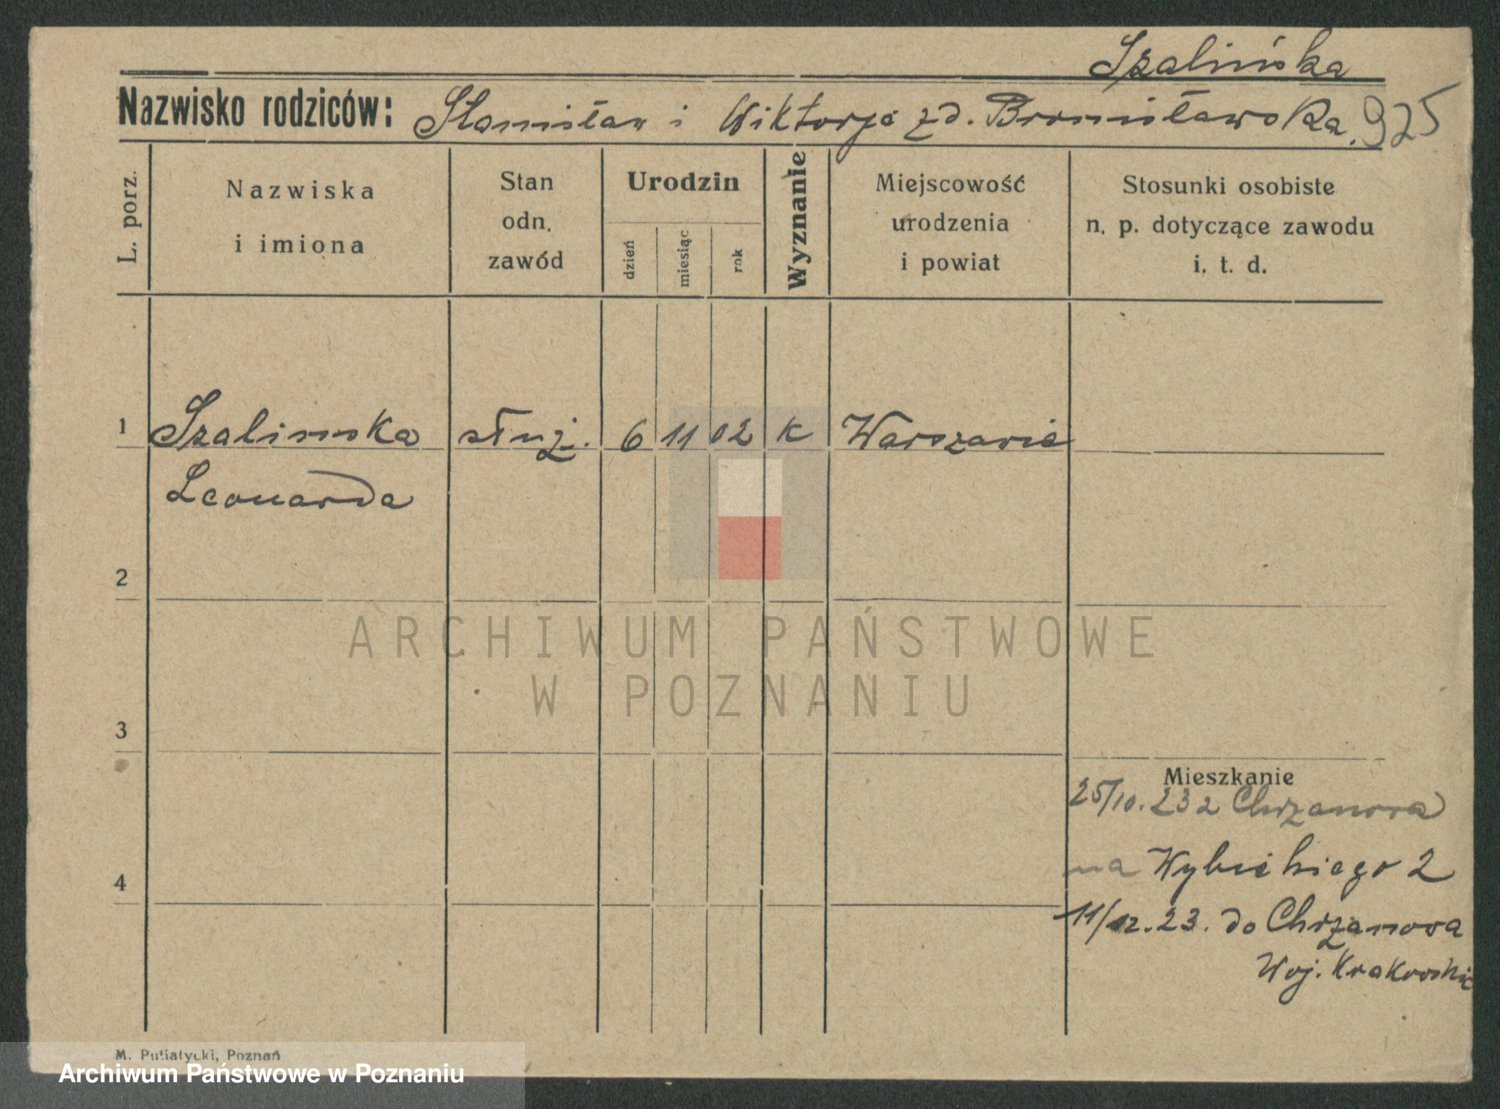 Szalińska
Nazwisko rodziców: Stanisław i Wiktorja zd. Bronisławska. 925
L. porz.
Nazwiska
i imiona
Stan
odn.
zawód
Urodzin
dzień
miesiąc
rok
Wyznanie
Miejscowość
urodzenia
i powiat
Stosunki osobiste
n. p. dotyczące zawodu
i. t. d.
1 Szalinska służ. 6 11 02 K Warszawie
Leonarda
2
ARCHIWUM PAŃSTWOWE
W POZNANIU
3
Mieszkanie
25/10. 23 z Chrzanowa
na Wybickiego 2
4
11/12. 23. do Chrzanowa
Woj. Krakowskie
M. Putiatycki, Poznań
Archiwum Państwowe w Poznaniu